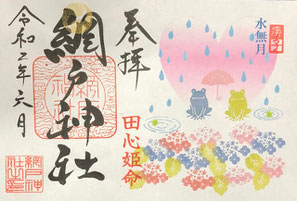 水無月
田心姫命
奉拝
網戸神社
令和二年六月